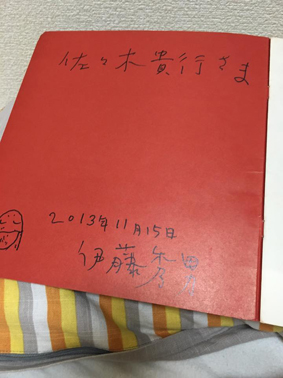 佐々木貴行さま
2013年11月15日
伊藤